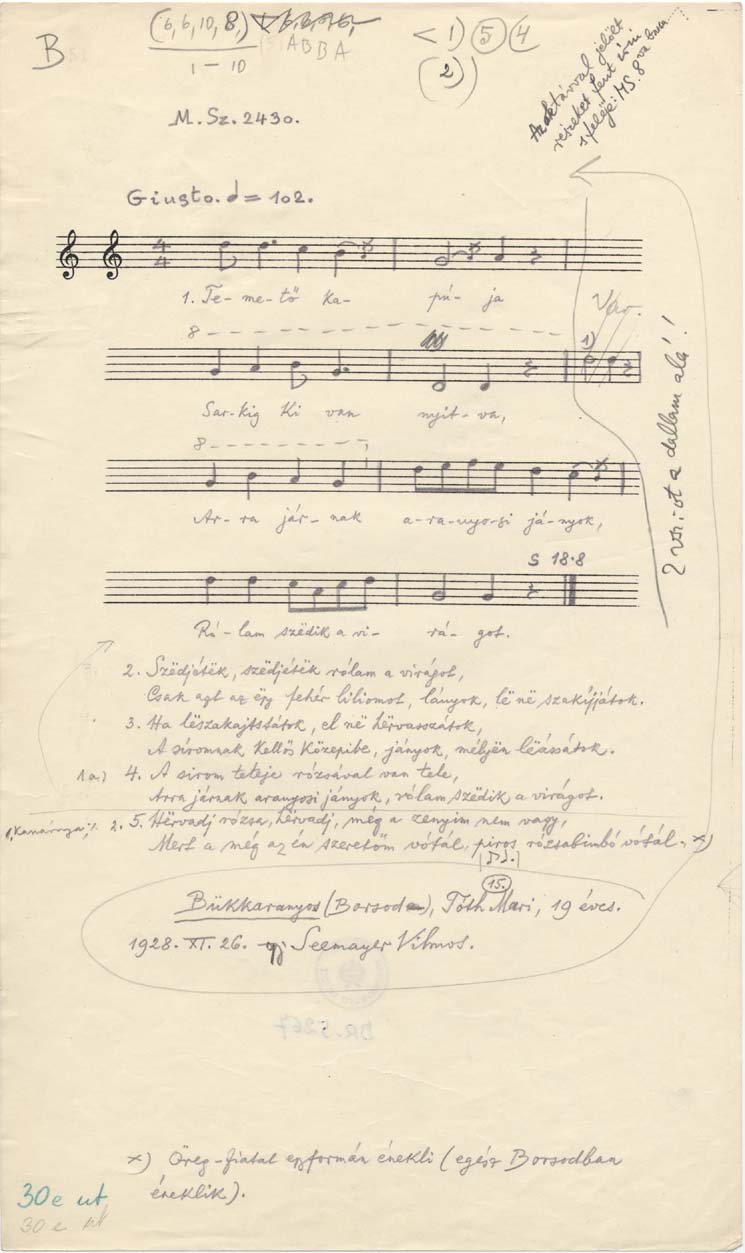 B
(6, 6, 10, 8,)
1 – 10
ABBA
< 1) 5 4
(2)
Az oktávval jelölt
részeket fent írni
s fölé: MS. 8va
M. Sz. 2430.
Giusto. = 102.
4
4
1. Te- me- tő ka- pú- ja
8
Var.
1)
Sar- kig ki van nyit- va,
8
Ar- ra jár- nak a-ra-nyo-si já-nyok,
S 18·8
Ró- lam szëdik a vi- rá- got.
2 vsz.-ot a dallam alá!
2. Szëdjétëk, szëdjétëk rólam a virágot,
Csak azt az ëgy fehér liliomot, lányok, lë në szakíjjátok.
3. Ha lëszakajtstátok, el në hërvasszátok,
A síromnak këllős közepibe, jányok, mélyën lëássátok.
1a.) 4. A sirom teteje rózsával van tele,
Arra járnak aranyosi jányok, rólam szëdik a virágot.
2. 5. Hërvadj rózsa, hërvadj, még a zenyim nem vagy,
Mert a még az én szeretőm vótál, piros rózsabimbó vótál. x)
15.
Bükkaranyos (Borsod), Tóth Mari, 19 éves.
1928. XI. 26. Seemayer Vilmos.
DR. 5267
x) Öreg-fiatal egyformán énekli (egész Borsodban
éneklik).
30 e ut
30 e ut